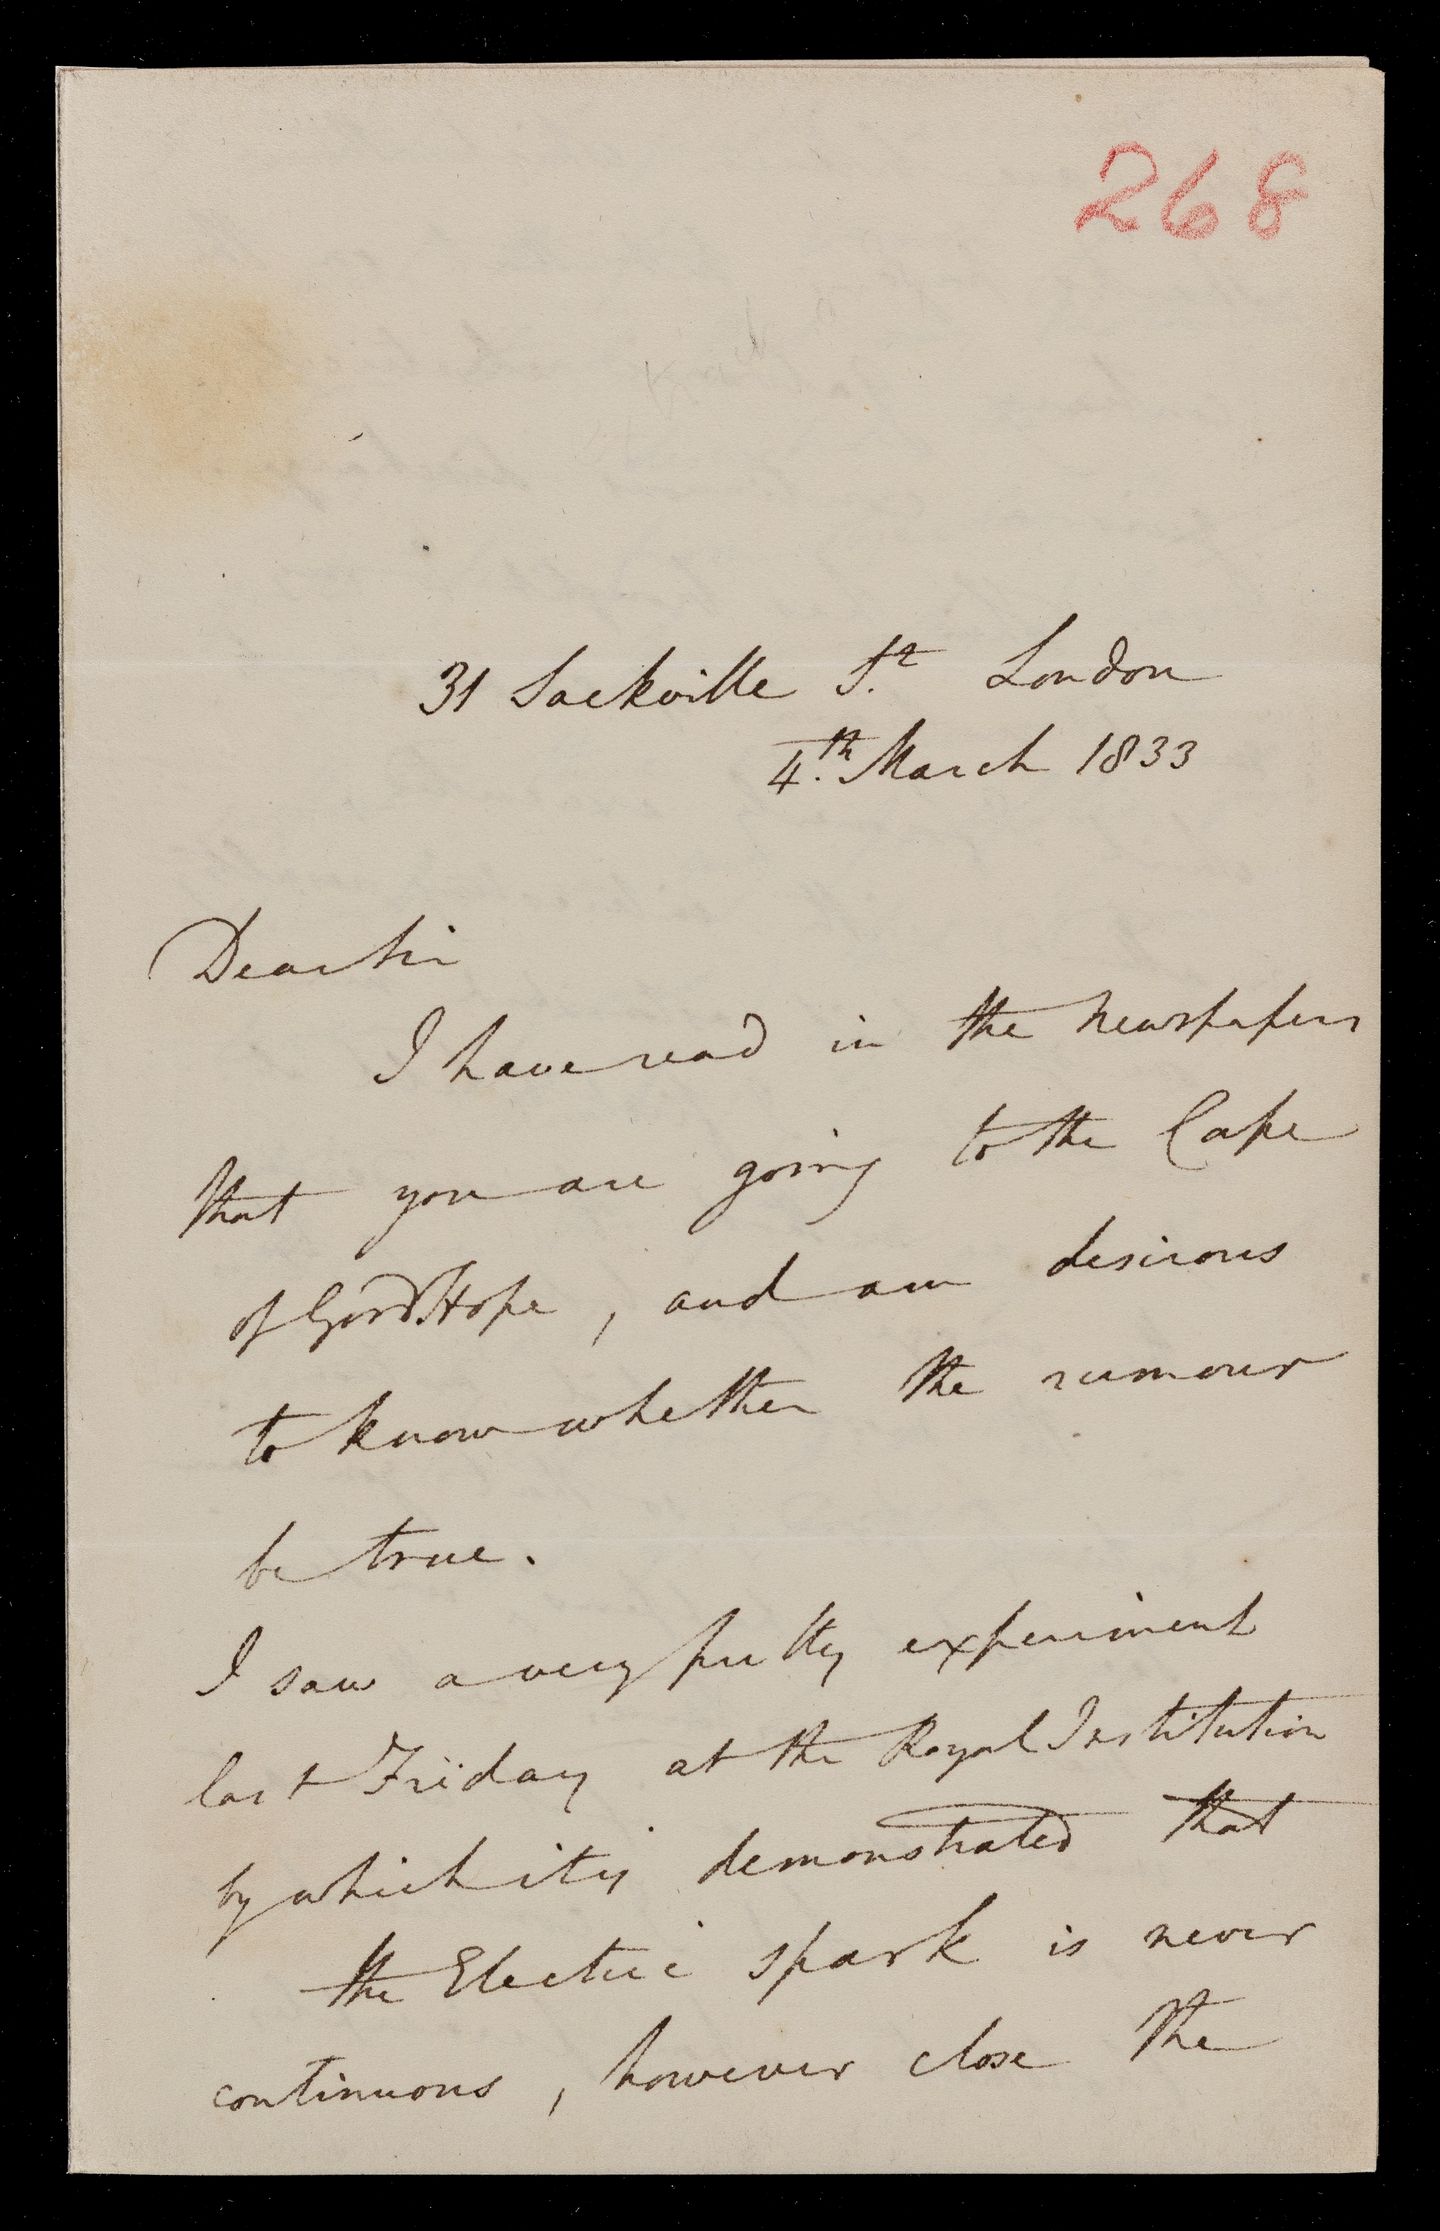 268
31 Sackville St. London
4.th March 1833
Dear Sir
I have read in the Newspapers
that you are going to the Cape
of Good Hope, and am desirous
to know whether the rumour
be true.
I saw a very pretty experiment
last Friday at the Royal Institution
by which it is demonstrated that
the Electric spark is never
continuous, however close the